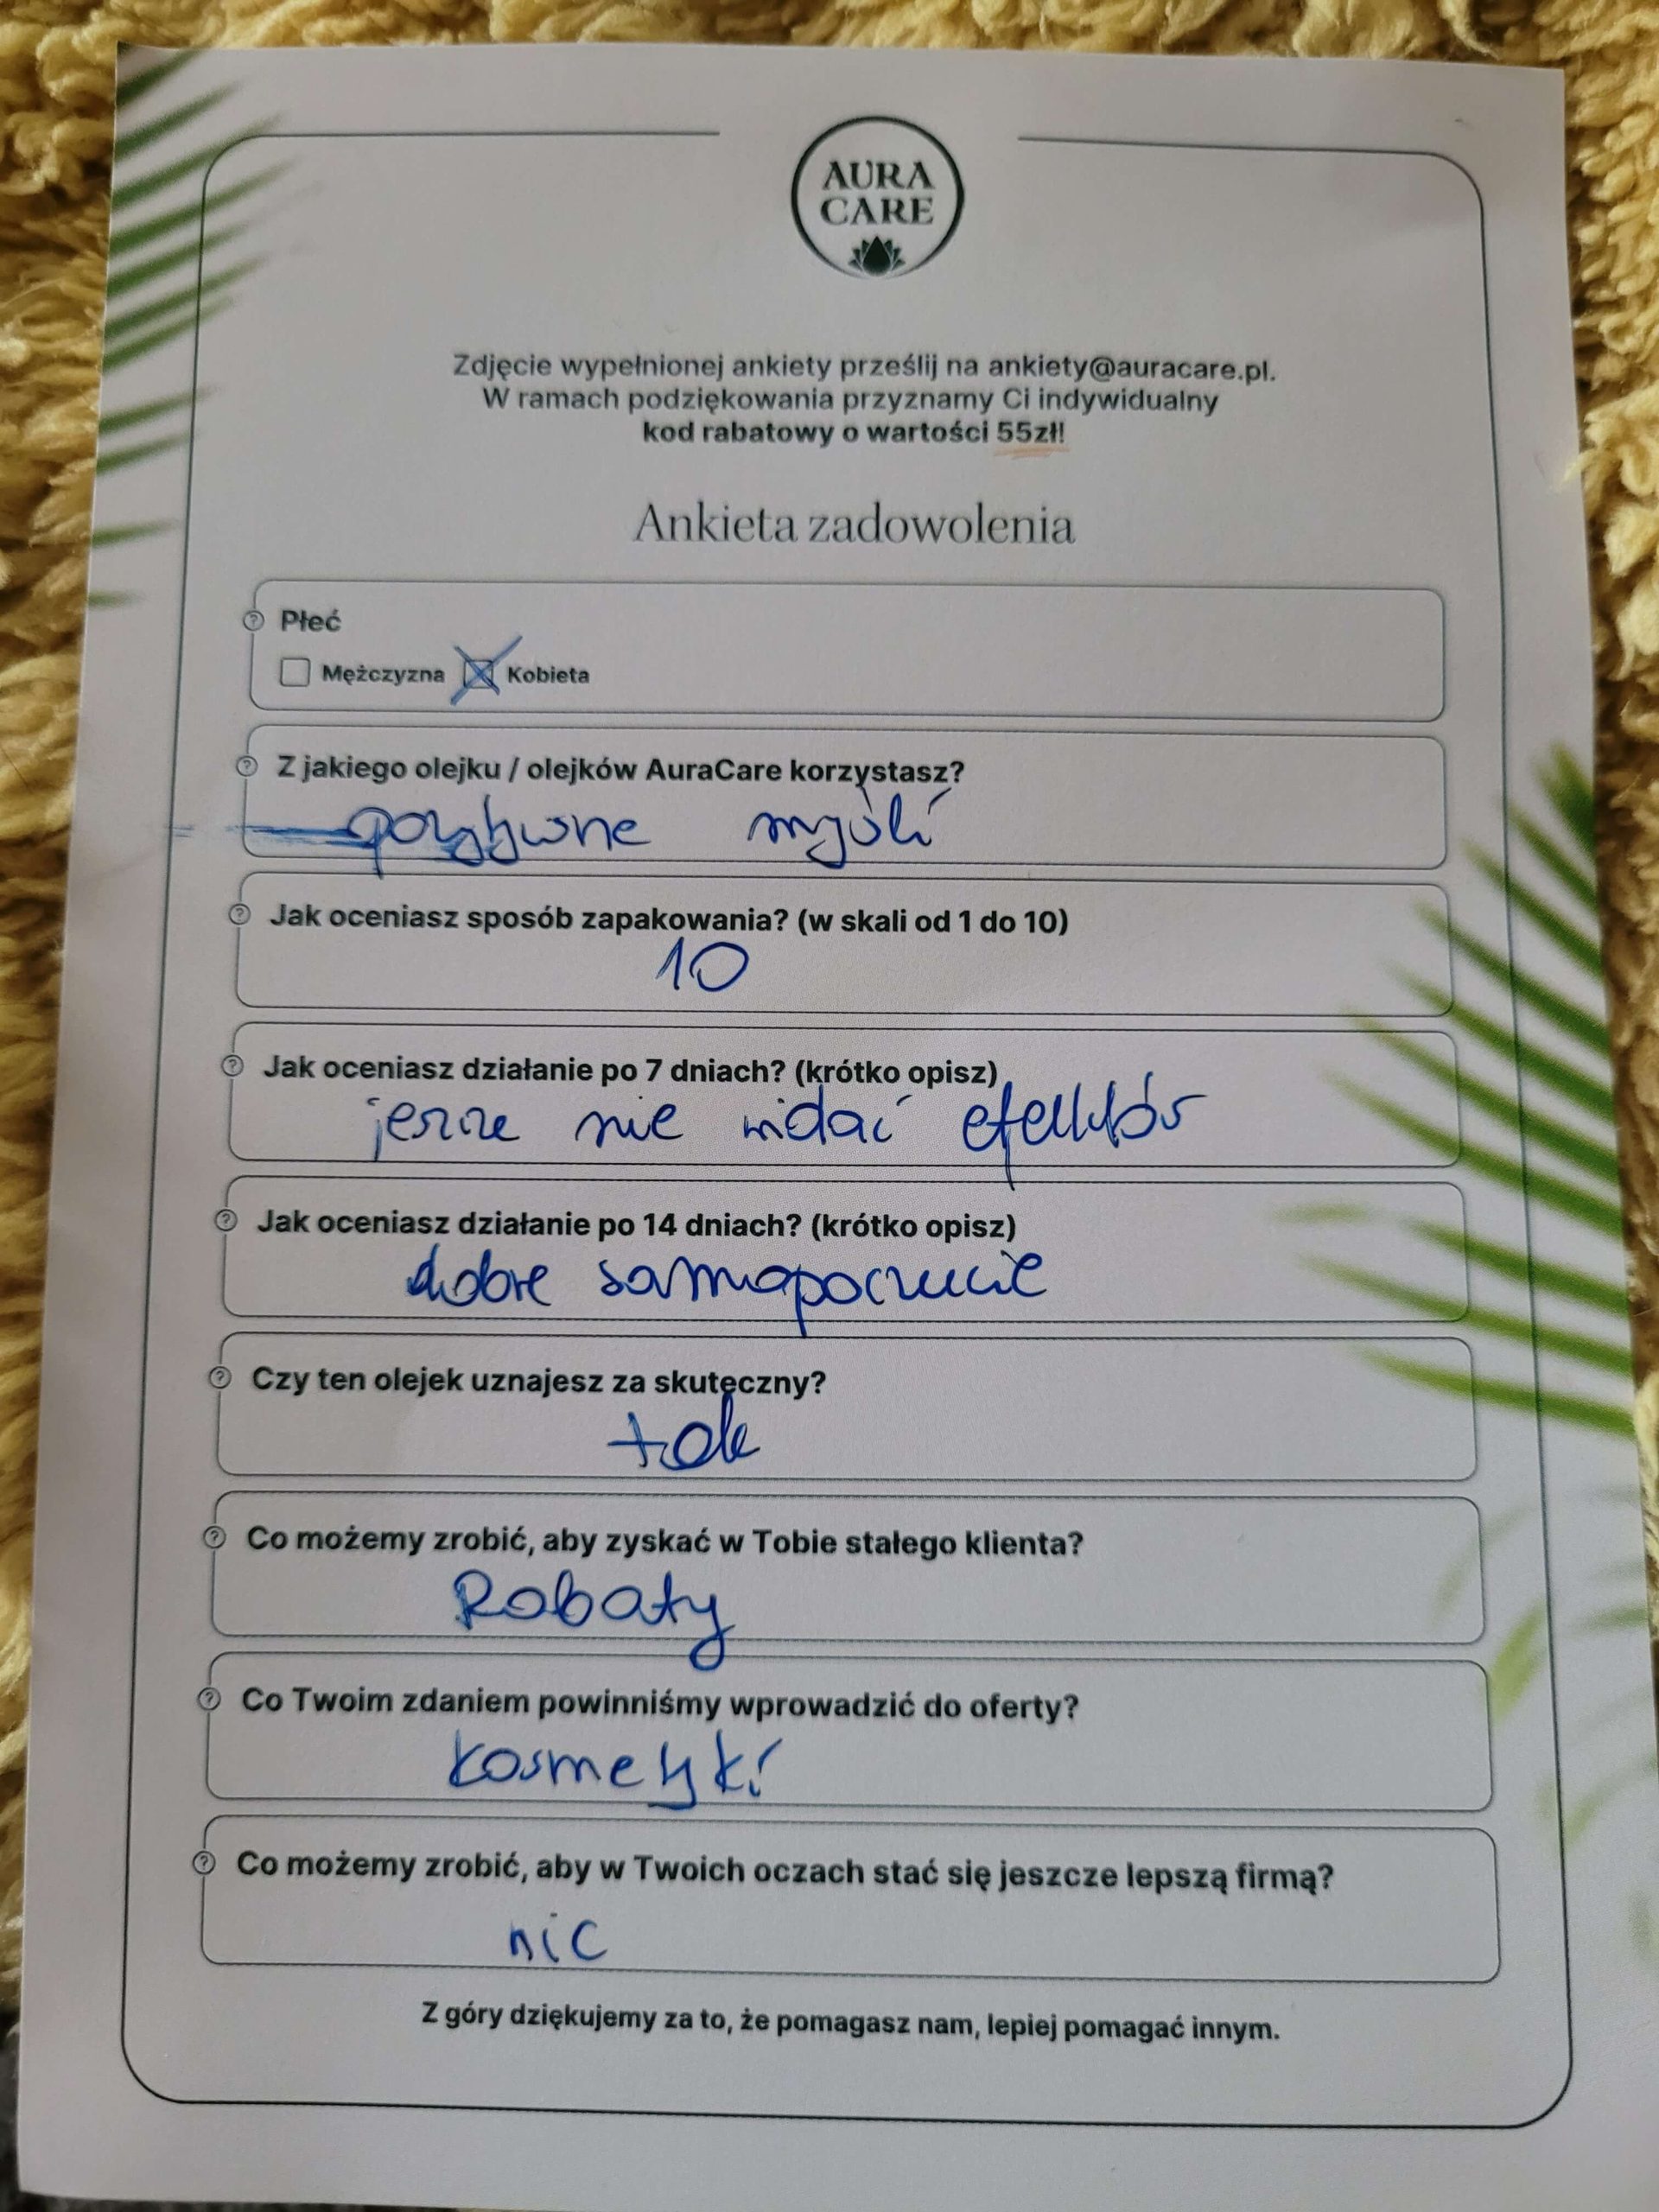 AURA
CARE
Zdjęcie wypełnionej ankiety prześlij na ankiety@auracare.pl.
W ramach podziękowania przyznamy Ci indywidualny
kod rabatowy o wartości 55zł!
Ankieta zadowolenia
Płeć
Mężczyzna Kobieta
Z jakiego olejku / olejków AuraCare korzystasz?
pozytywne myśli
Jak oceniasz sposób zapakowania? (w skali od 1 do 10)
10
Jak oceniasz działanie po 7 dniach? (krótko opisz)
jeszcze nie widać efektów
Jak oceniasz działanie po 14 dniach? (krótko opisz)
dobre samopoczucie
Czy ten olejek uznajesz za skuteczny?
tak
Co możemy zrobić, aby zyskać w Tobie stałego klienta?
Rabaty
Co Twoim zdaniem powinniśmy wprowadzić do oferty?
kosmetyki
Co możemy zrobić, aby w Twoich oczach stać się jeszcze lepszą firmą?
nic
Z góry dziękujemy za to, że pomagasz nam, lepiej pomagać innym.